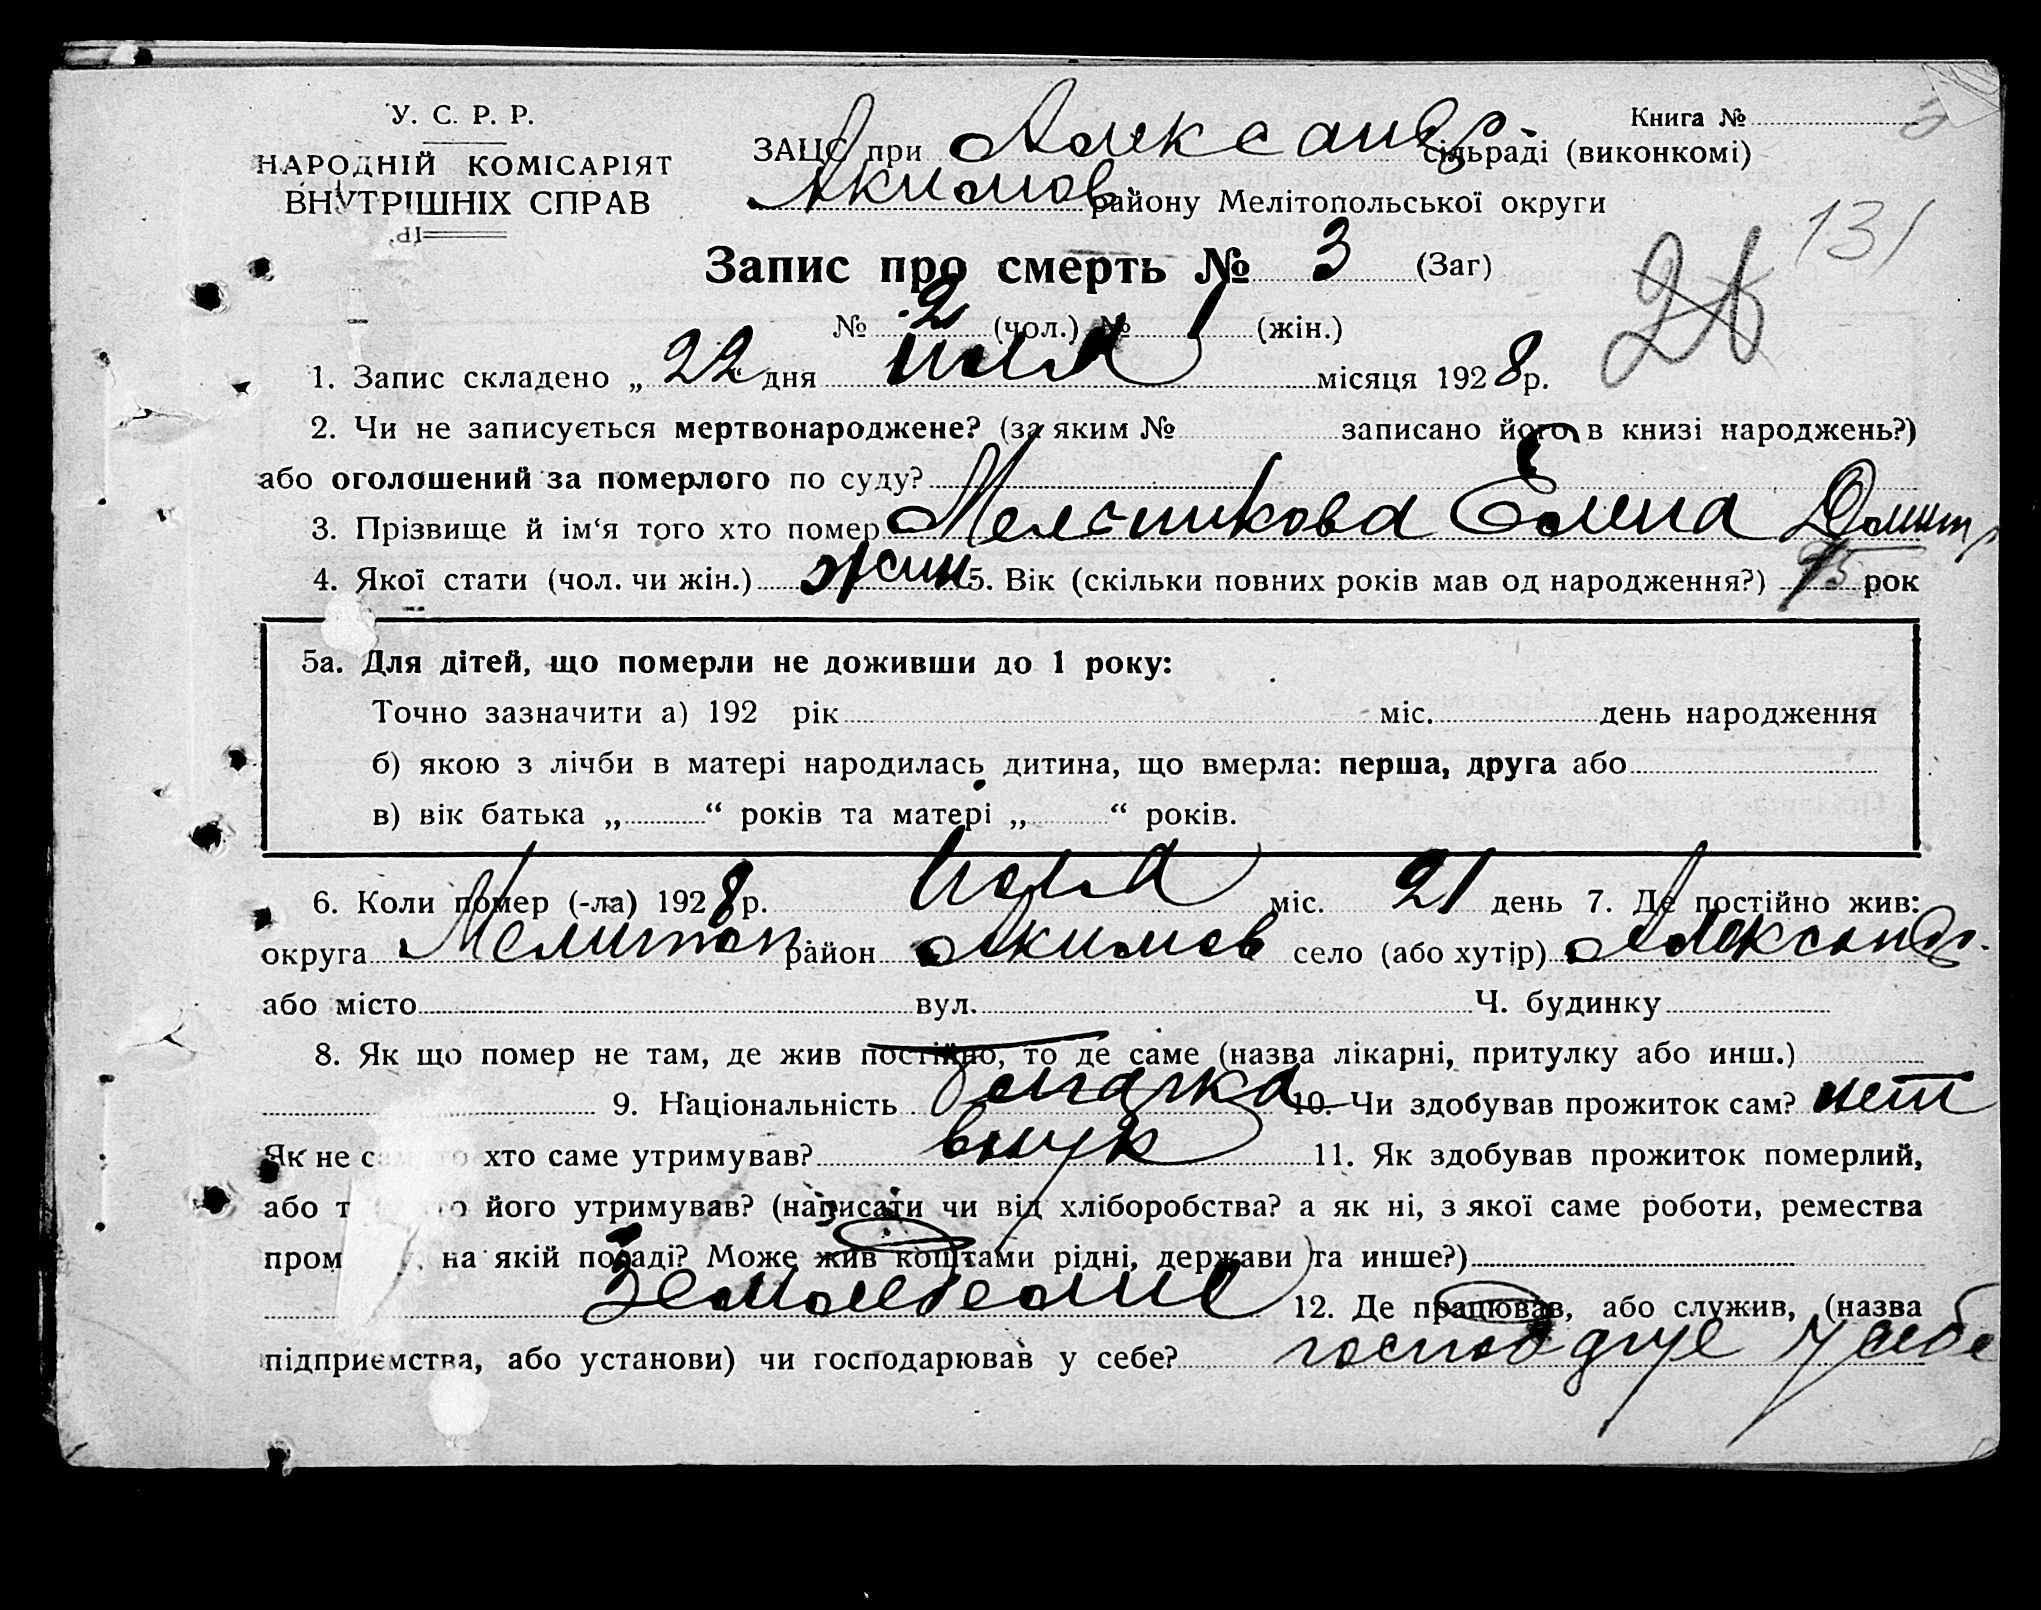 У. С. Р. Р.
НАРОДНІЙ КОМІСАРІЯТ
ВНУТРІШНІХ СПРАВ
Книга №
ЗАЦС при Александр. сільраді (виконкомі)
Акимов. району Мелітопольської округи
131
Запис про смерть № 3 (Заг)
№ 2 (чол.) № 1 (жін.)
1. Запис складено „ 22 " дня місяця 1928 р.
2. Чи не записується мертвонароджене? (за яким № записано його в книзі народжень?)
або оголошений за померлого по суду?
3. Прізвище й ім‘я того хто помер Мельникова Елена Дмит
4. Якої стати (чол. чи жін.) жин 5. Вік (скільки повних років мав од народження?) 95 рок
5а. Для дітей, що померли не доживши до 1 року:
Точно зазначити а) 192 рік міс. день народження
б) якою з лічби в матері народилась дитина, що вмерла: перша, друга або
в) вік батька „ “ років та матері „ “ років.
6. Коли помер (-ла) 1928 р. міс. 21 день 7. Де постійно жив:
округа Мелитоп. район Акимов село (або хутір) Александр.
або місто вул. Ч. будинку
8. Як що помер не там, де жив постійно, то де саме (назва лікарні, притулку або инш.)
9. Національність болгарка 10. Чи здобував прожиток сам? нет
Як не хто саме утримував? внук 11. Як здобував прожиток померлий,
або його утримував? (написати чи від хліборобства? а як ні, з якої саме роботи, ремества
на якій посаді? Може жив коштами рідні, держави та инше?)
Земледелие 12. Де працював, або служив, (назва
підприємства, або установи) чи господарював у себе? господарує у себе